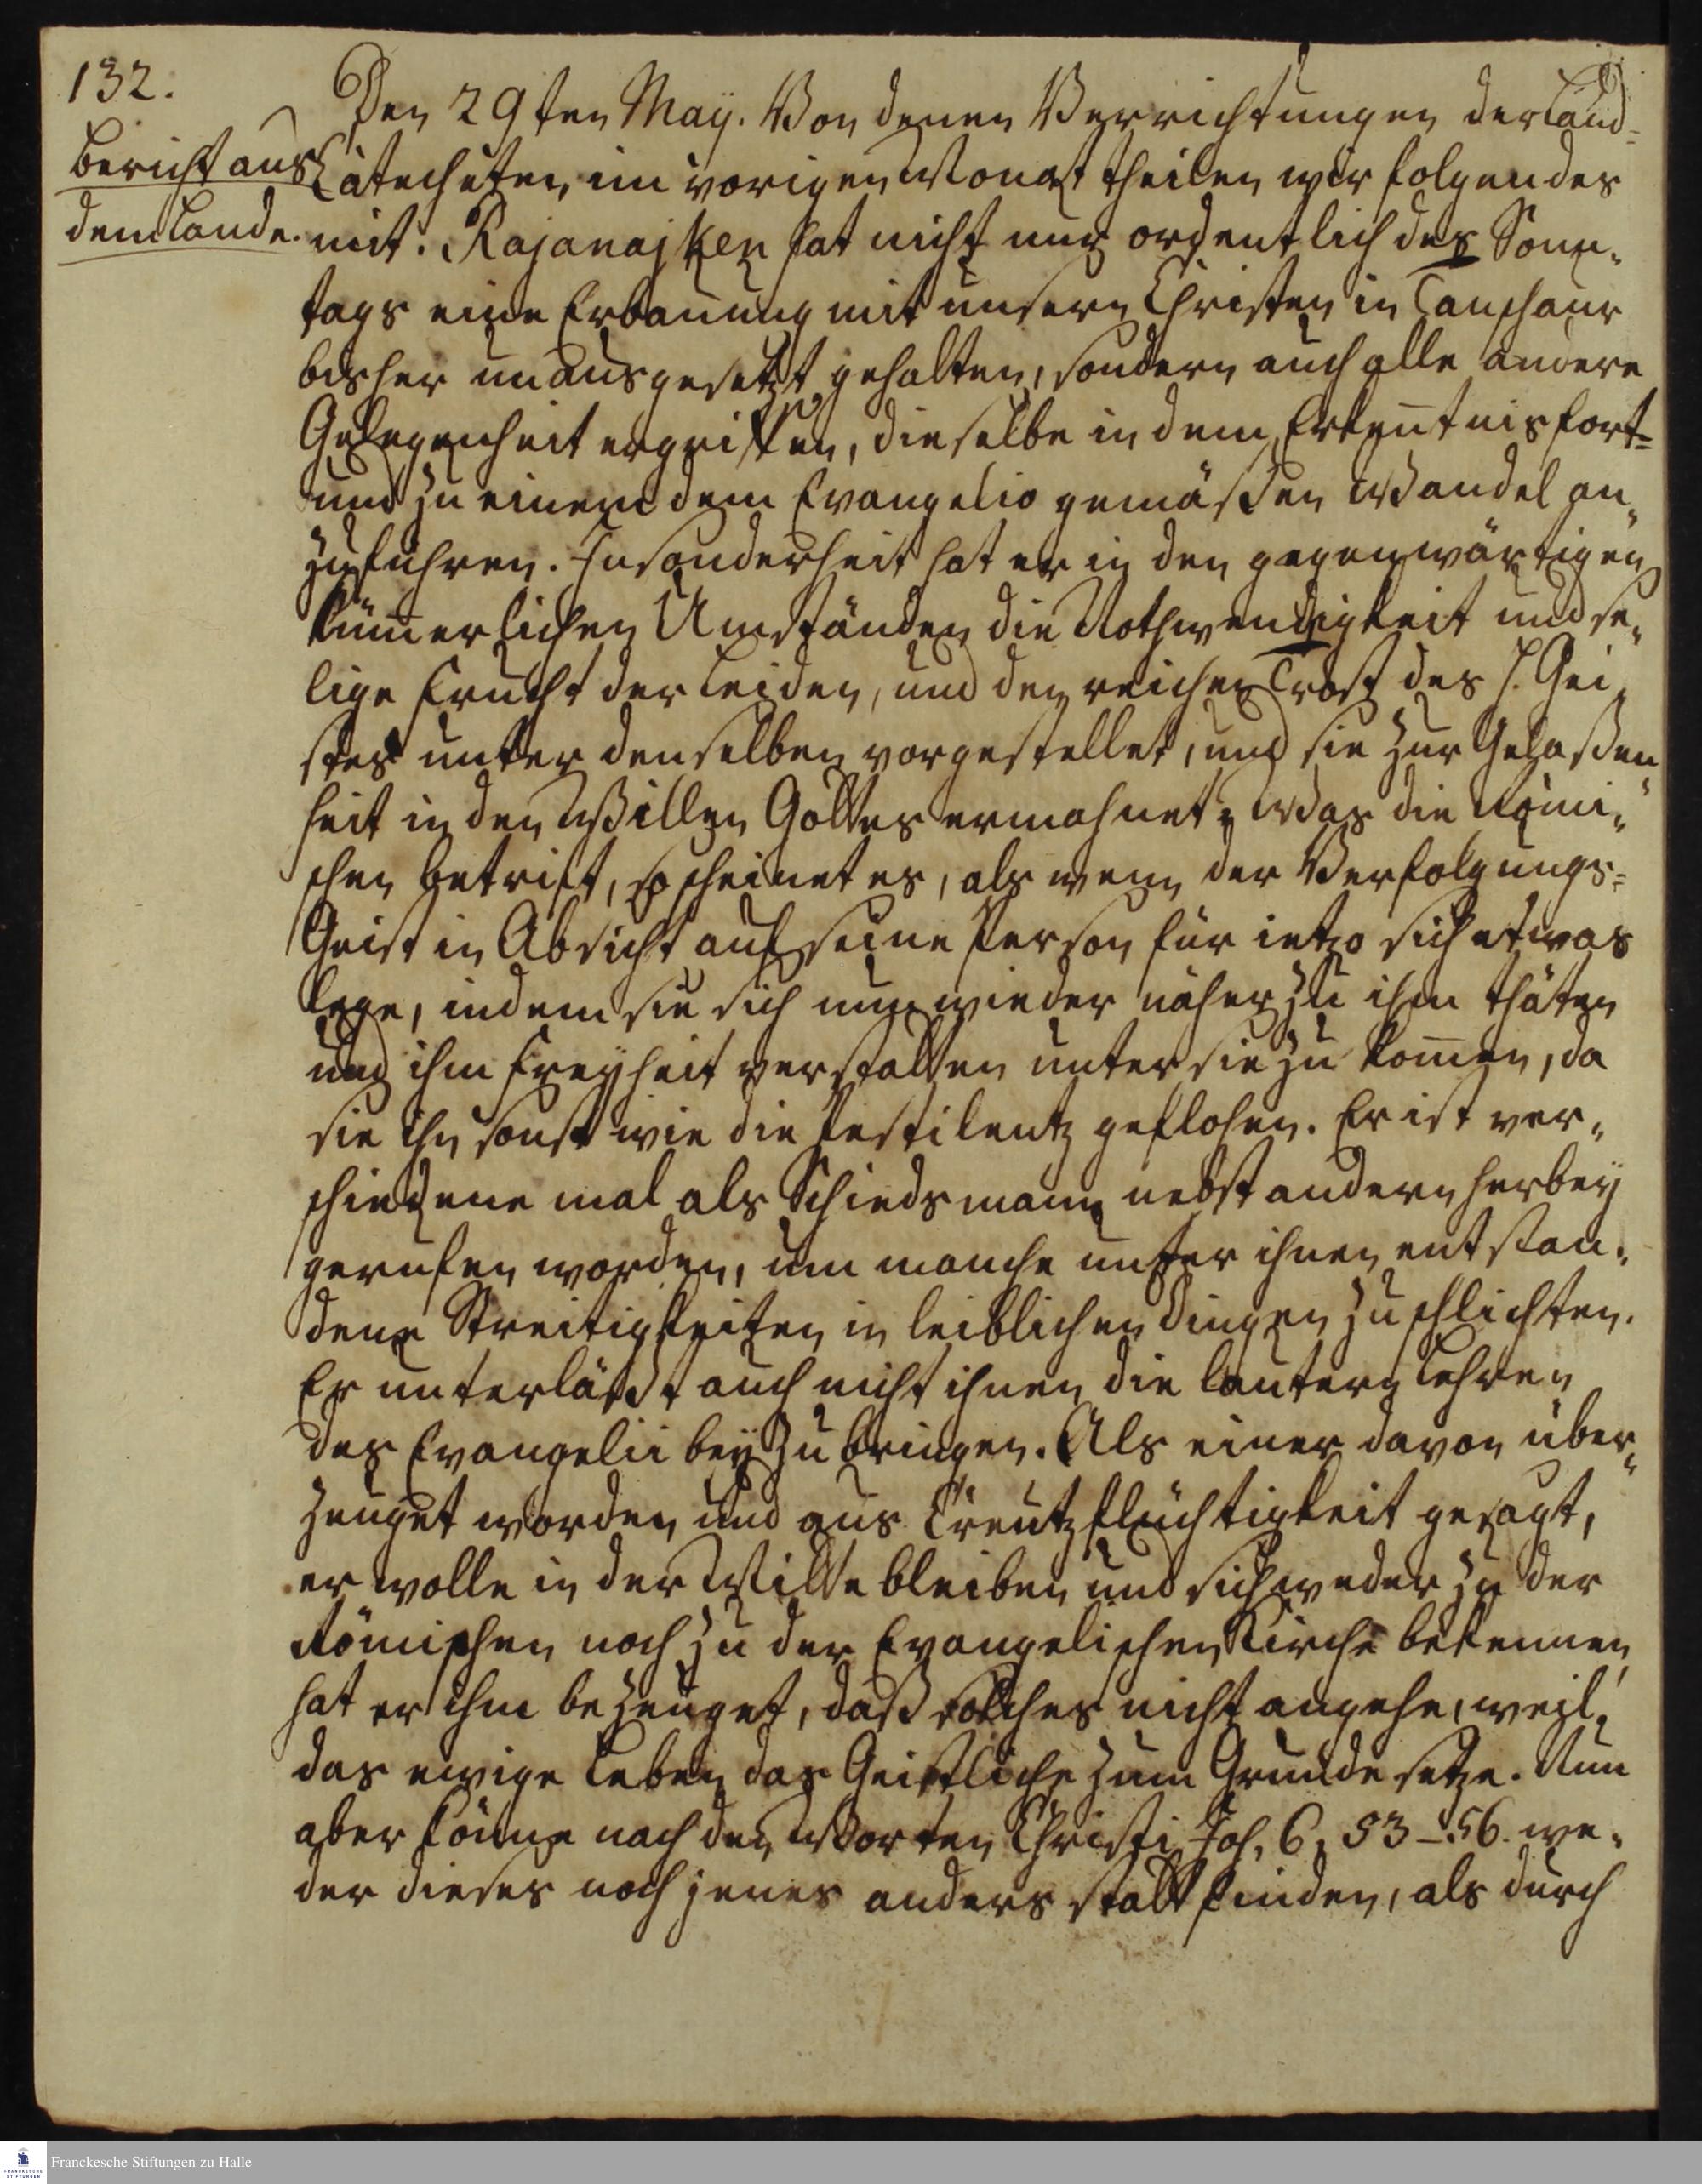 132.
Bericht aus
dem Lande.
Den 29ten May. Von denen Verrichtungen der Land-
Catecheten im vorigen Monat theilen wir folgendes
mit. Rajanajken hat nicht nur ordentlich des Sonn-
tags eine Erbauung mit unsern Christen in Tanschaur
bisher unausgesetzt gehalten, sondern auch alle andere
Gelegenheit ergriffen, dieselbe in dem Erkenntnis fort-
und zu einem dem Evangelio gemäßen Wandel an-
zuführen. Insonderheit hat er in den gegenwärtigen
kümmerlichen Umständen die Nothwendigkeit und se-
lige Frucht der Leiden, und den reichen Trost des H. Gei-
stes unter denselben vorgestellet, und sie zur Gelaßen-
heit in den Willen Gottes ermahnet. Was die Römi-
schen betrift, so scheinet es, als wenn der Verfolgungs-
Geist in Absicht auf seine Person für ietzo sich etwas
lege, indem sie sich nun wieder näher zu ihm thäten
und ihm Freyheit verstatten unter sie zu kommen, da
sie ihn sonst wie die Pestilentz geflohen. Er ist ver-
schiedene mal als Schiedsmann nebst andern herbey
gerufen worden, um manche unter ihnen entstan-
dene Streitigkeiten in leiblichen Dingen zu schlichten.
Er unterläßt auch nicht ihnen die lautern Lehren
des Evangelii beyzubringen. Als einer davon über-
zeuget worden und aus Creutzflüchtigkeit gesagt,
er wolle in der Mitte bleiben und sich weder zu der
Römischen noch zu der Evangelischen Kirche bekennen,
hat er ihm bezeuget, daß solches nicht angehe, weil
das ewige Leben das Geistliche zum Grunde setze. Nun
aber könne nach den Worten Christi Joh. 6, 53-56. we-
der dieses noch jenes anders statt finden, als durch
Franckesche Stiftungen zu Halle